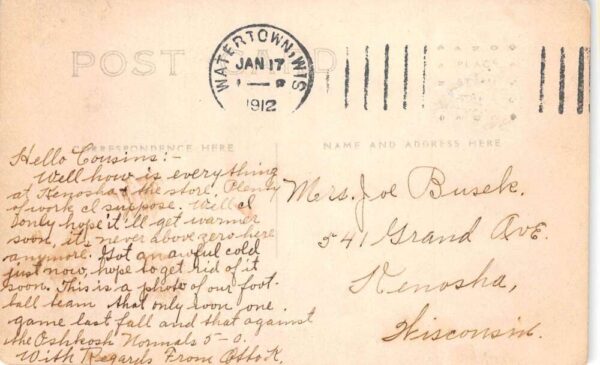 POST CARD
WATERTOWN, WIS.
JAN 17
1912
PLACE
CORRESPONDENCE HERE
NAME AND ADDRESS HERE
Hello Cousins:-
Well how is everything
at Kenosha & the store. Plenty
of work I suppose. Well I
only hope it'll get warmer
soon, it's never above zero here
anymore. Got an awful cold
just now, hope to get rid of it
soon. This is a photo of our foot-
ball team that only won one
game last fall and that against
the Oshkosh Normals 5-0.
With Regards From Otto K.
Mrs. Joe Busek.
541 Grand Ave.
Kenosha,
Wisconsin.